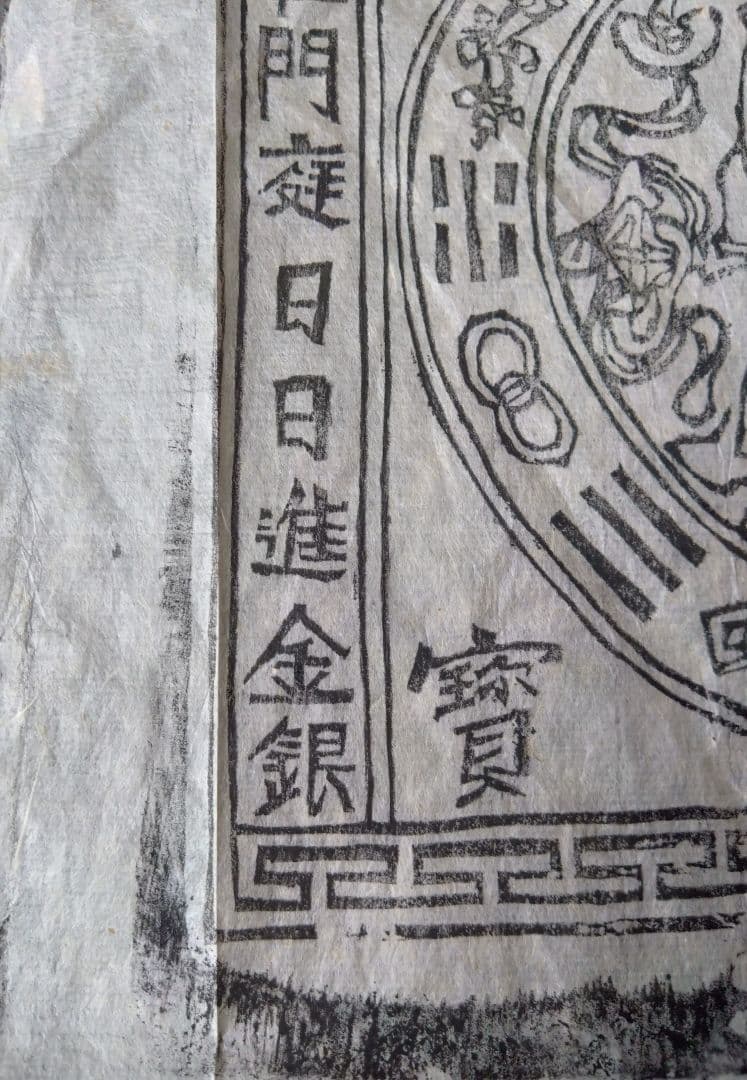 門庭日日進金銀
寶